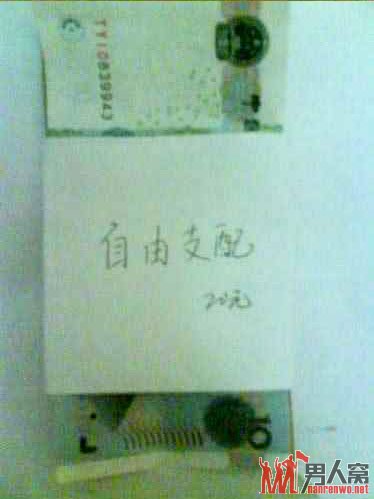 TY10839943
中国
自由支配
20元
10
男人窝
nanrenwo.net